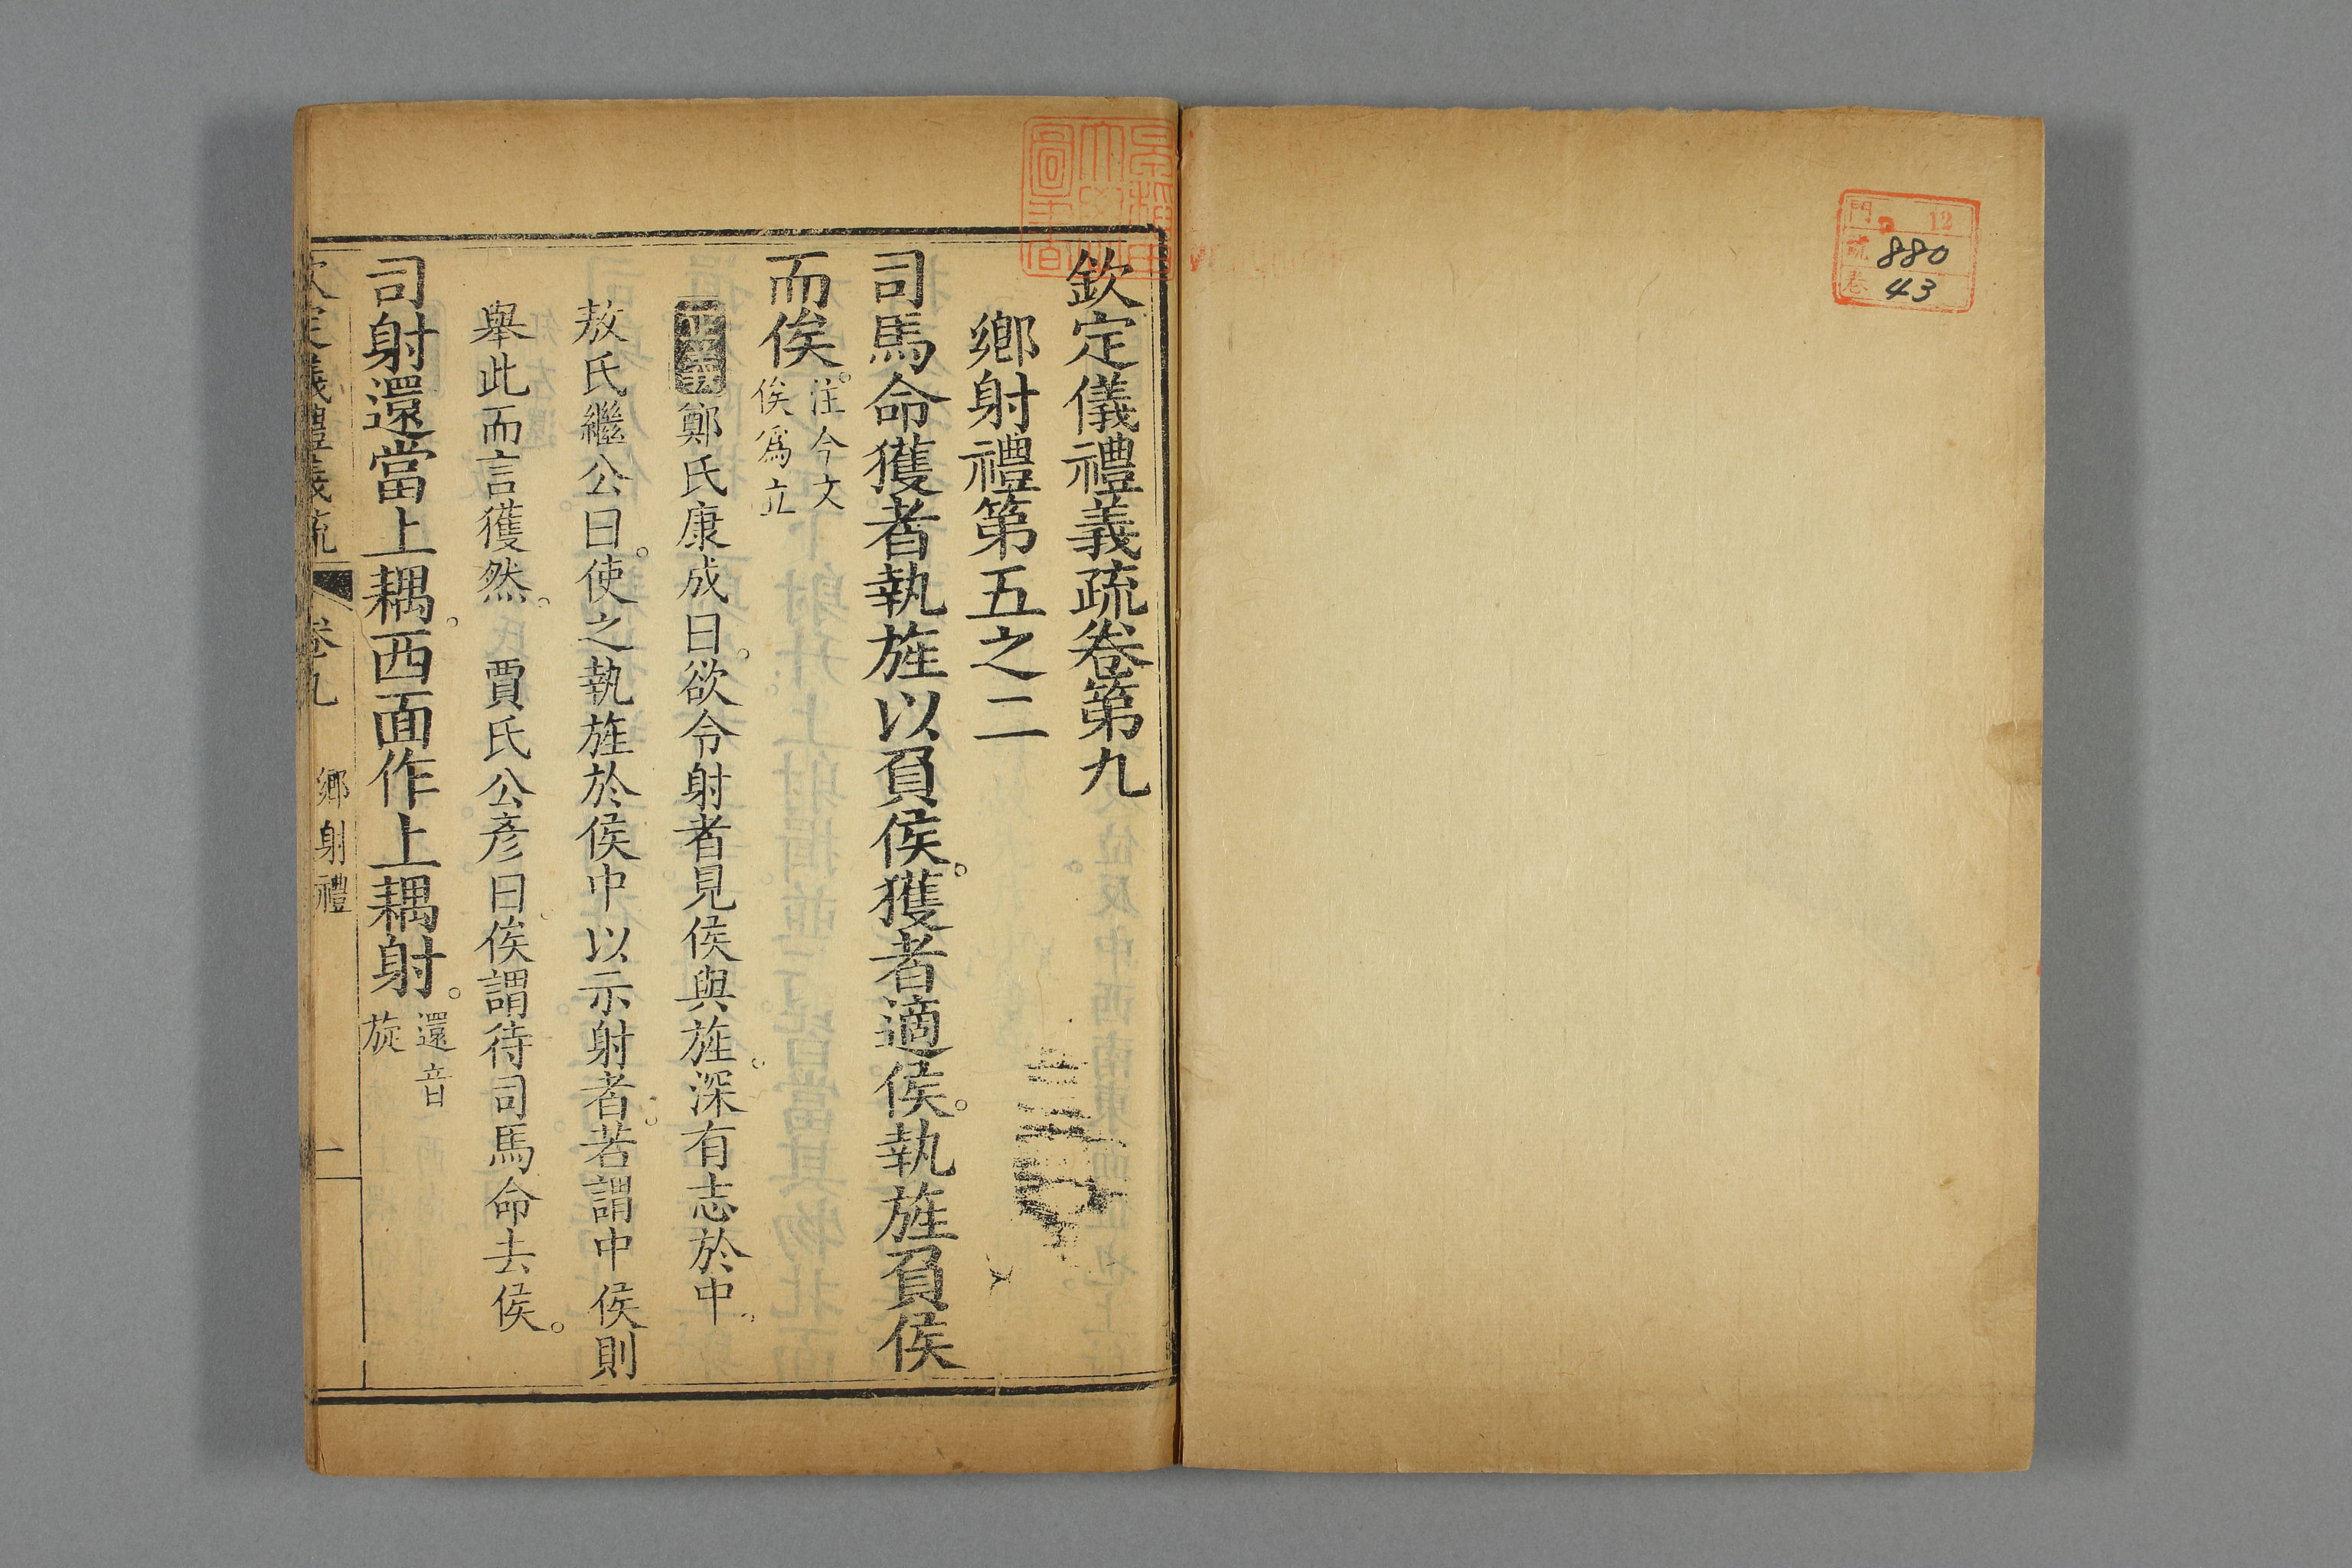 門 12
號 880
卷 43
欽定儀禮義疏卷第九
鄉射禮第五之二
司馬命獲者執旌以負侯。獲者適侯。執旌負侯
而俟。注今文
俟爲立
正義鄭氏康成曰。欲令射者見侯與旌。深有志於中。
敖氏繼公曰。使之執旌於侯中以示射者。若謂中侯則
舉此而言獲然。 賈氏公彥曰。俟謂待司馬命去侯。
司射還當上耦。西面作上耦射。還音
旋
欽定儀禮義疏 卷九 鄉射禮 一